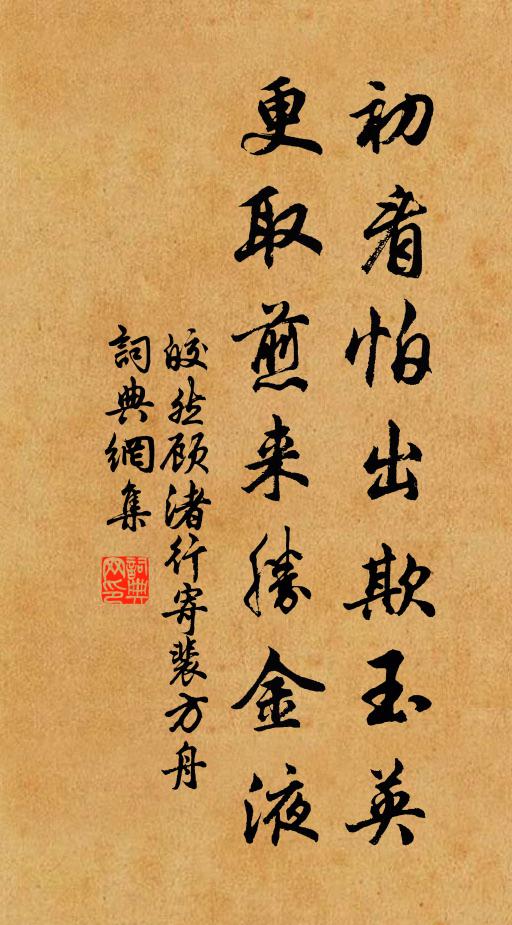 初看怕出欺玉英
更取煎来勝金液
皎然顾渚行寄裴方舟
詞典網集
詞典网印